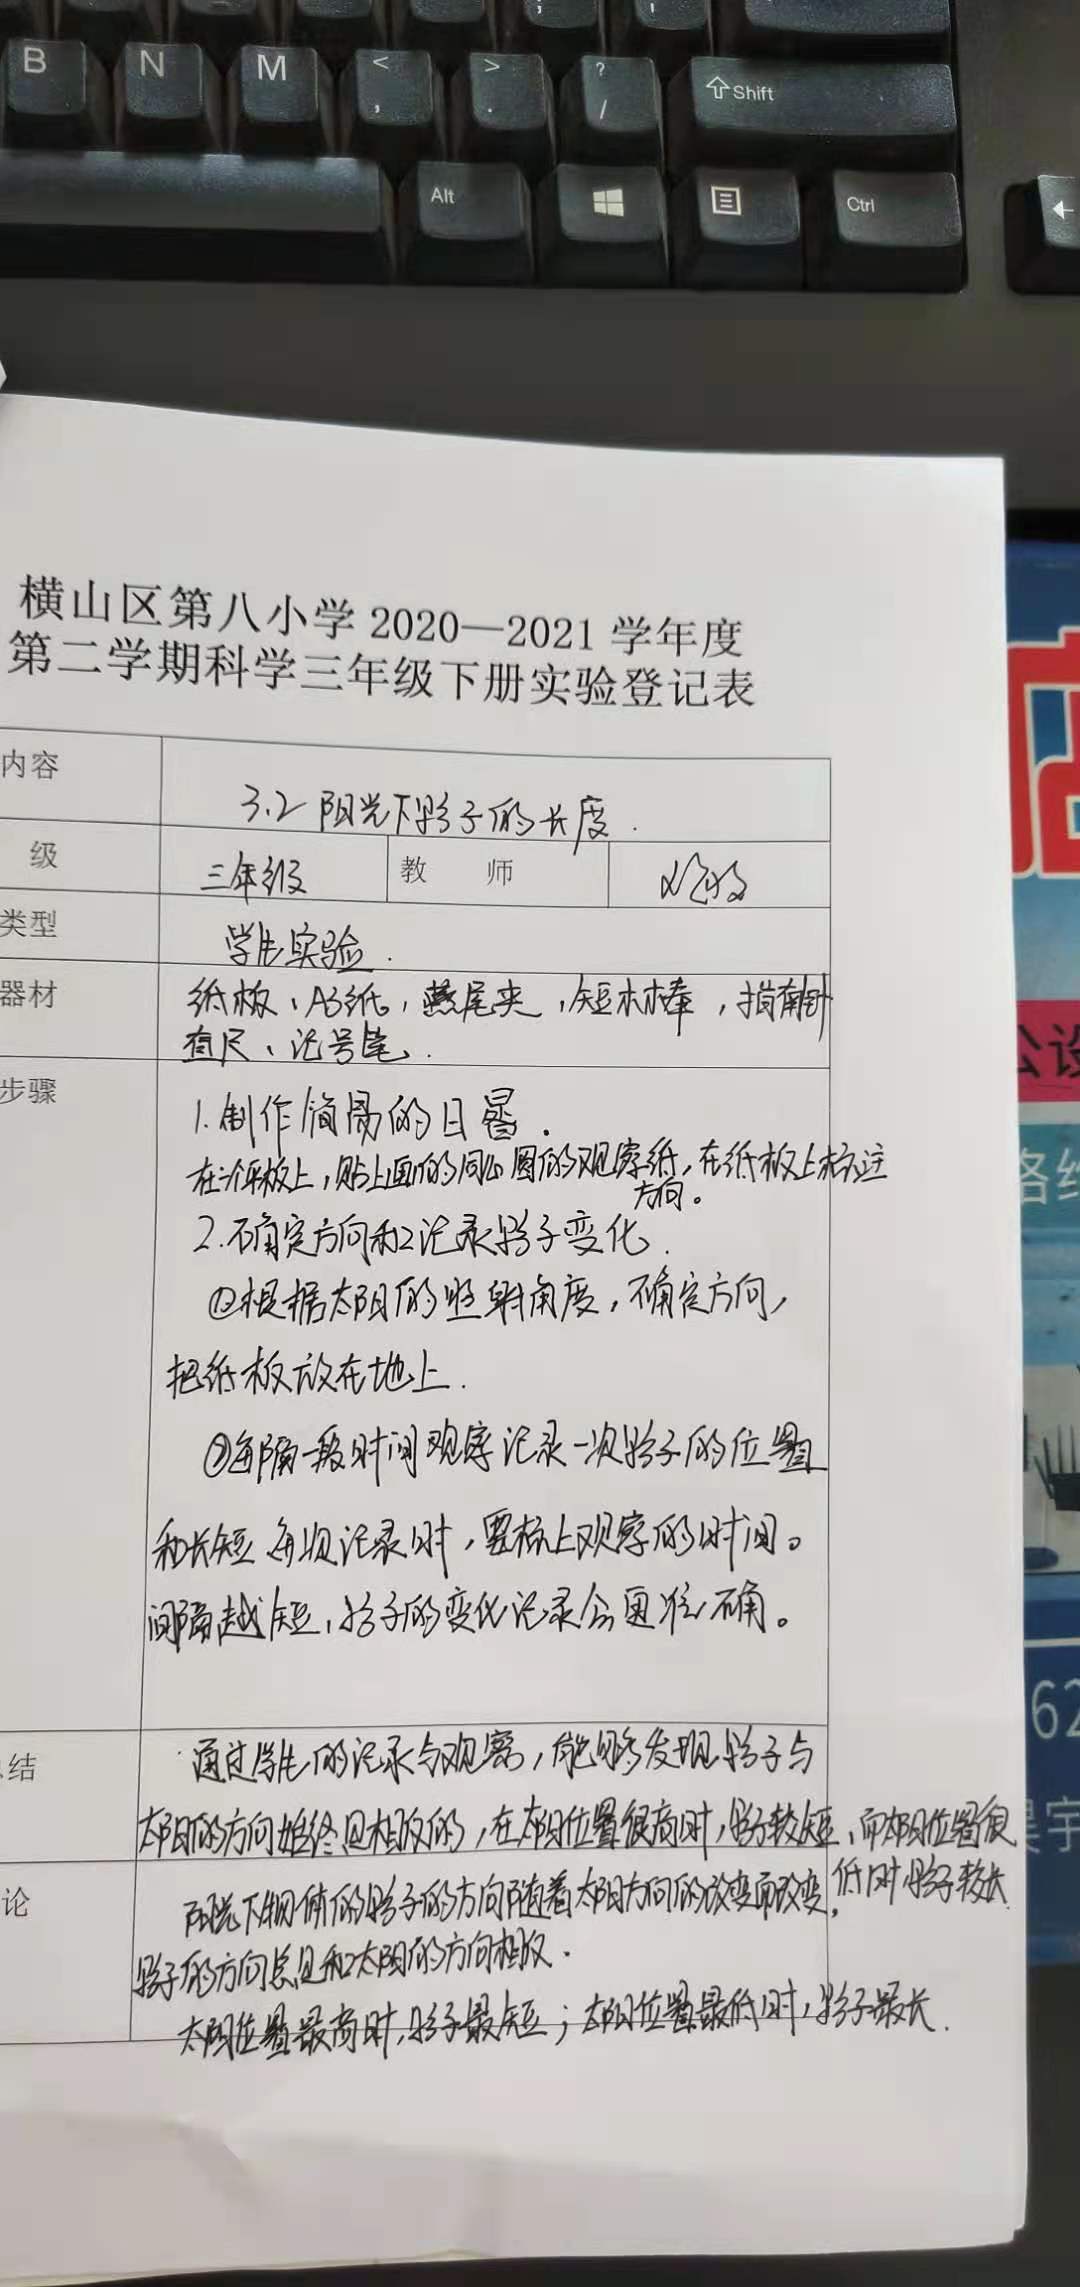 B N M < , > . ? / Shift
Alt Ctrl
横山区第八小学 2020—2021 学年度
第二学期科学三年级下册实验登记表
内容
3.2 阳光下影子的长度.
级 三年级 教 师
类型 学生实验.
器材 纸板、A3纸，燕尾夹，短木棒，指南针
直尺、记号笔.
步骤
1.制作简易的日晷.
在纸板上，贴上画的同心圆的观察纸，在纸板上标注
方向。
2.确定方向和记录影子变化.
①根据太阳的照射角度，确定方向，
把纸板放在地上.
②每隔一段时间观察记录一次影子的位置
和长短 每次记录时，要标上观察的时间。
间隔越短，影子的变化记录会更准确。
结 通过学生的记录与观察，能够发现影子与
太阳的方向始终是相反的，在太阳位置很高时，影子较短、而太阳位置很
低时影子较长
论 阳光下物体的影子的方向随着太阳方向的改变而改变，
影子的方向总是和太阳的方向相反.
太阳位置最高时，影子最短；太阳位置最低时，影子最长.
公设
62